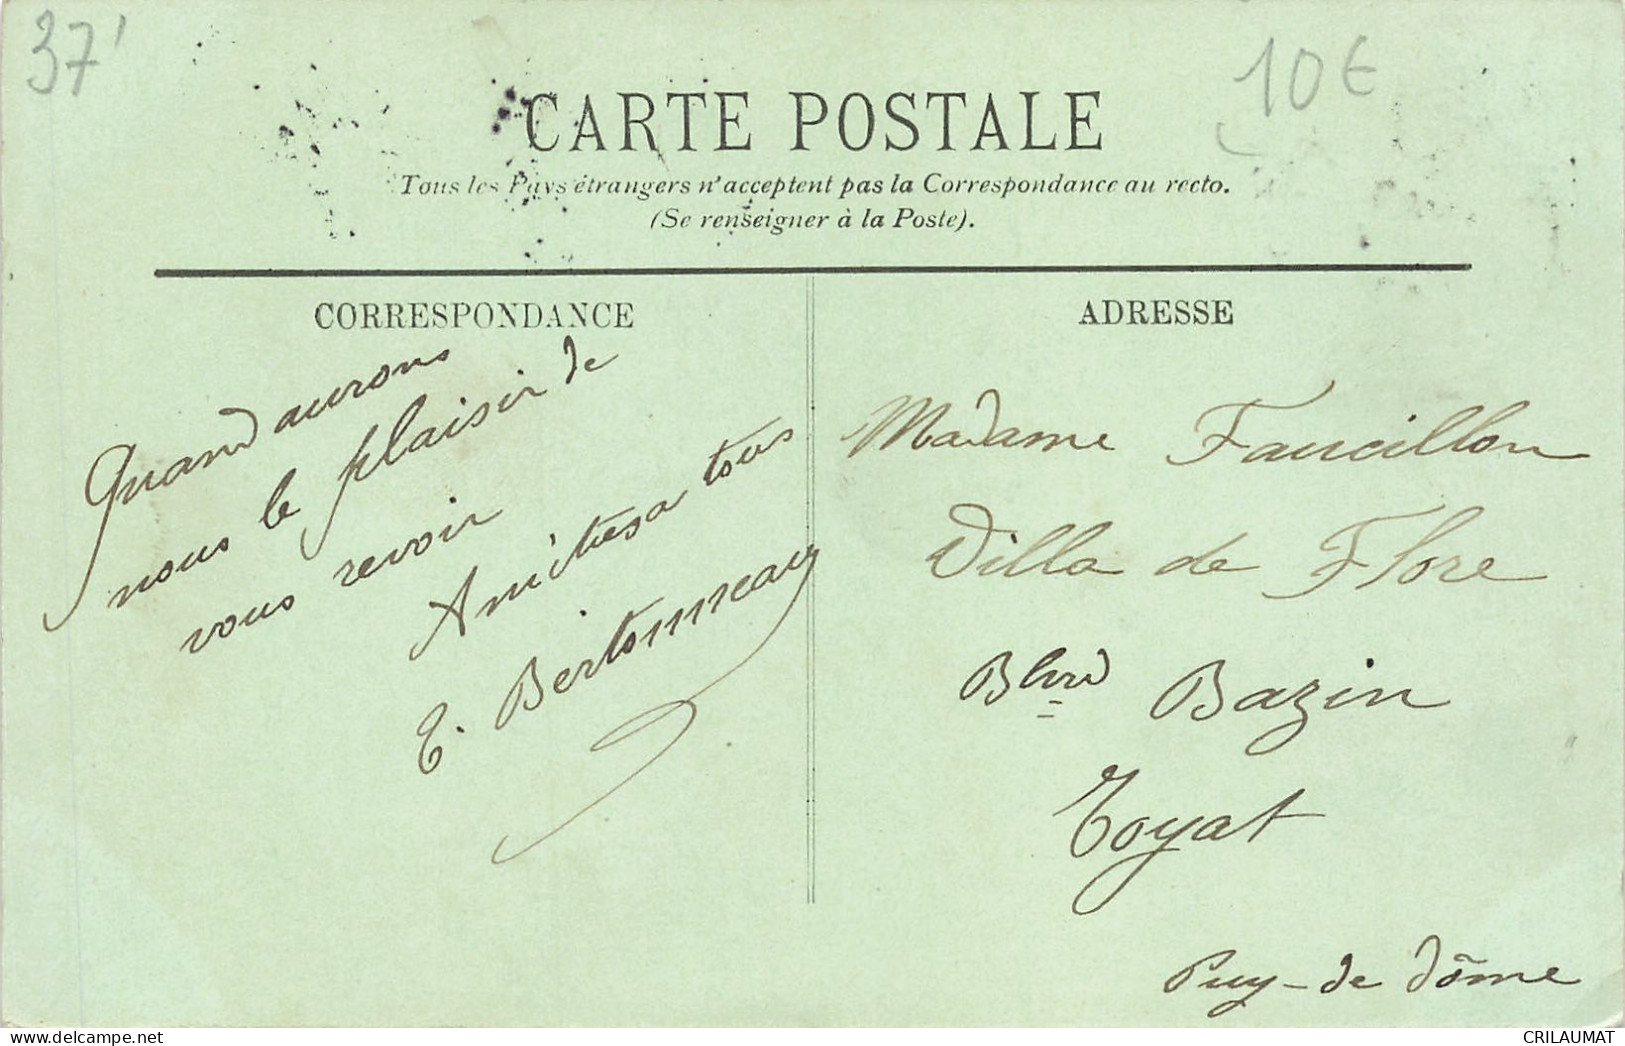 37'
10€
CARTE POSTALE
Tous les Pays étrangers n'acceptent pas la Correspondance au recto.
(Se renseigner à la Poste).
CORRESPONDANCE
Quand aurons
nous le plaisir de
vous revoir
Amities a tous
E. Bertonneau
ADRESSE
Madame Faucillon
Villa de Flore
Blvrd Bazin
Royat
Puy-de Dôme
www.delcampe.net
CRILAUMAT